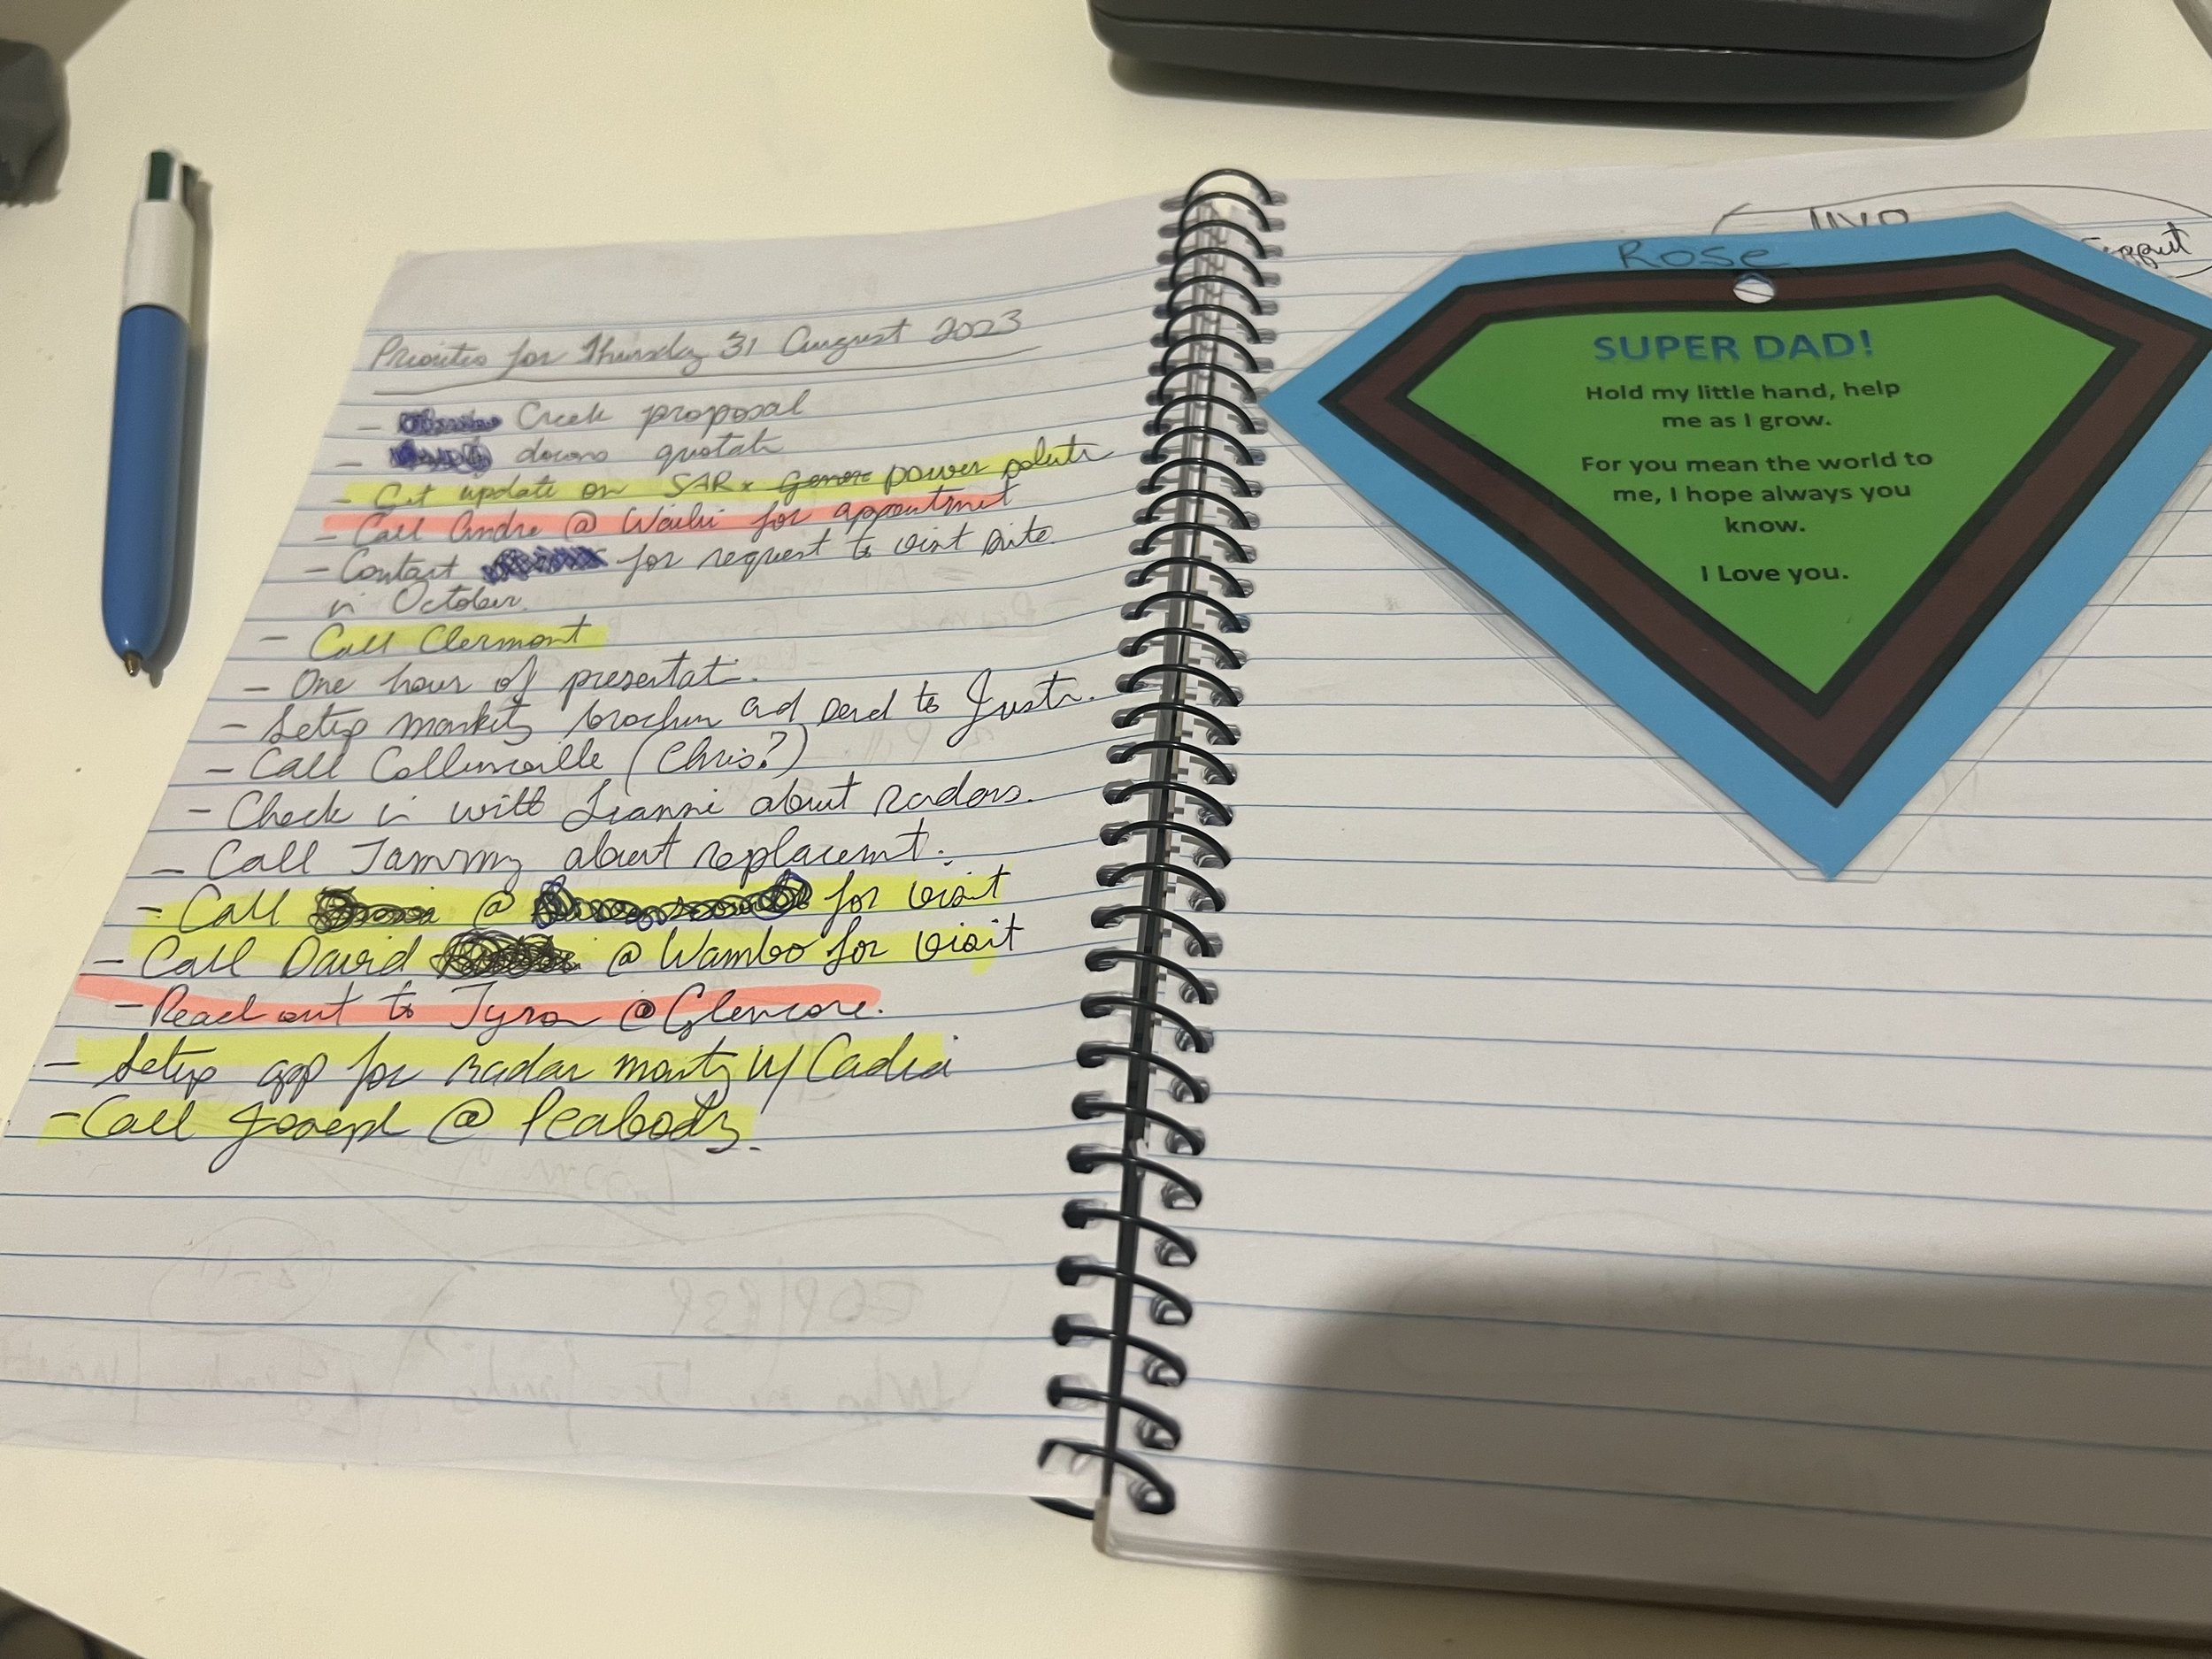 Priorities for Thursday 31 August 2023
- Creek proposal
- downs quotat
- Get update on SARx Genere power solutn
- Call Andre @ Waihi for appointmet
- Contact for request to visit site
in October.
- Call Clermont
- One hour of presentat.
- Setup markety brochur and send to Justn.
- Call Collinsville (Chris?)
- Check in with Leanne about radars.
- Call Tammy about replacemt.
- Call @ for visit
- Call David @ Wambo for visit
- Reach out to Tyron @ Glencore.
- Setup app for radar monty w/ Cadia
- Call Joseph @ Peabody.
Rose
SUPER DAD!
Hold my little hand, help
me as I grow.
For you mean the world to
me, I hope always you
know.
I Love you.